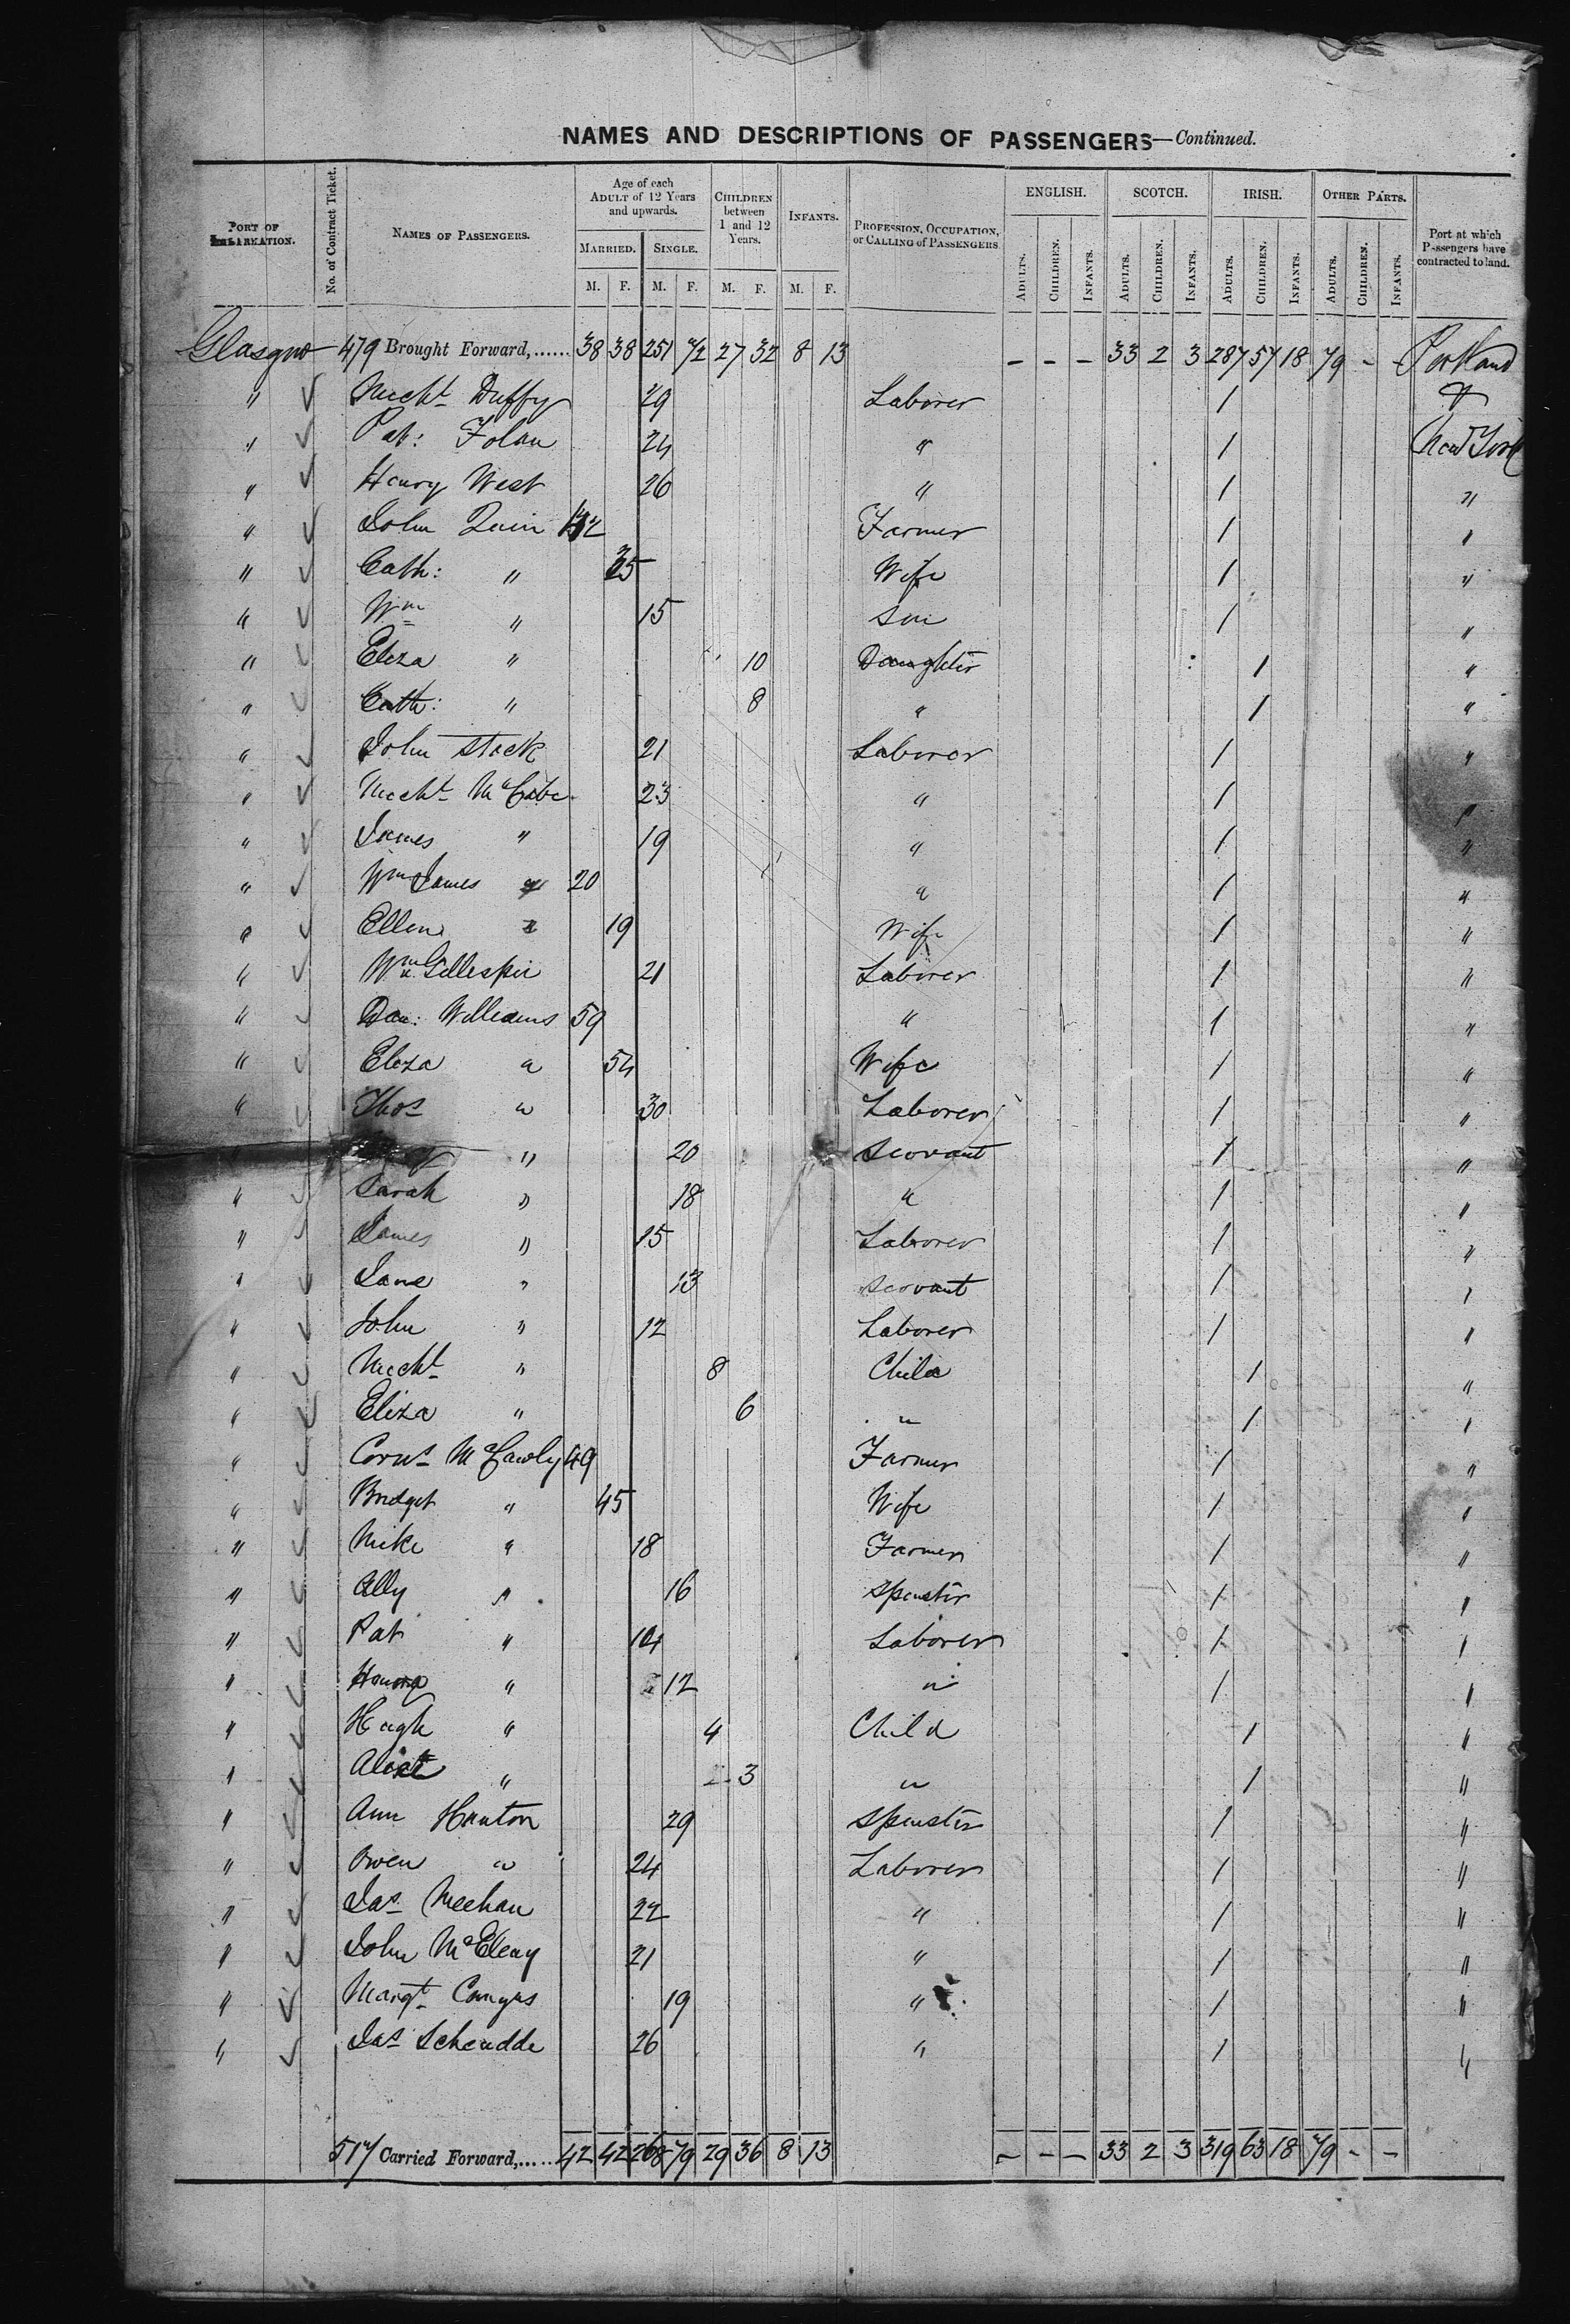 NAMES AND DESCRIPTIONS OF PASSENGERS—Continued.
PORT OF EMBARKATION. No. of Contract Ticket. NAMES OF PASSENGERS. Age of each ADULT of 12 Years and upwards. MARRIED. M. F. SINGLE. M. F. CHILDREN between 1 and 12 Years. M. F. INFANTS. M. F. PROFESSION, OCCUPATION, or CALLING of PASSENGERS ENGLISH. ADULTS. CHILDREN. INFANTS. SCOTCH. ADULTS. CHILDREN. INFANTS. IRISH. ADULTS. CHILDREN. INFANTS. OTHER PARTS. ADULTS. CHILDREN. INFANTS. Port at which Passengers have contracted to land.
Glasgow 479 Brought Forward,...... 38 38 251 72 27 32 8 13 - - - 33 2 3 287 57 18 79 - - Portland
" Micht Duffy 29 Laborer 1 &
" Pat: Folan 24 " 1 New York
" Henry West 26 " 1 "
" John Quin 42 Farmer 1 "
" Cath: " 35 Wife 1 "
" Wm " 15 Son 1 "
" Eliza " 10 Daughter 1 "
" Cath: " 8 " 1 "
" John Stack 21 Laborer 1 "
" Micht McCabe 23 " 1 "
" James " 19 " 1 "
" Wm James " 20 " 1 "
" Ellen " 19 Wife 1 "
" Wm Gillespie 21 Laborer 1 "
" Dan: Williams 59 " 1 "
" Eliza " 54 Wife 1 "
" Thos " 30 Laborer 1 "
" " 20 Servant 1 "
" Sarah " 18 " 1 "
" James " 15 Laborer 1 "
" Jane " 13 Servant 1 "
" John " 12 Laborer 1 "
" Micht " 8 Child 1 "
" Eliza " 6 " 1 "
" Corns McCawly 49 Farmer 1 "
" Bridget " 45 Wife 1 "
" Mike " 18 Farmer 1 "
" Ally " 16 Spinster 1 "
" Pat " 14 Laborer 1 "
" Honora " 12 " 1 "
" Hugh " 4 Child 1 "
" " 3 " 1 "
" Ann Hanton 29 Spinster 1 "
" Owen " 24 Laborer 1 "
" Jas Meehan 22 " 1 "
" John McEleay 21 " 1 "
" Margt 19 " 1 "
" Jas 26 " 1 "
517 Carried Forward,..... 42 42 268 79 29 36 8 13 - - - 33 2 3 319 63 18 79 - -